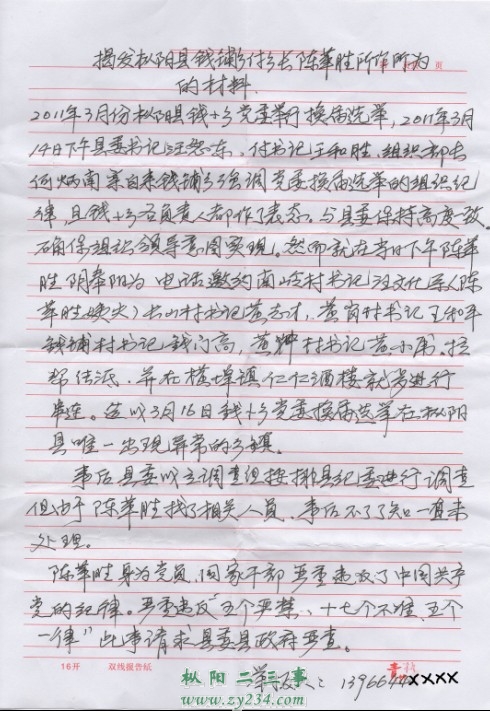 揭发枞阳县钱铺乡付乡长陈革胜所作所为
页
的材料
2011年3月份枞阳县钱铺乡党委举行换届选举,2011年3月
14日下午县委书记汪 东、付书记王和胜,组织部长
何炳南亲自来钱铺乡强调党委换届选举的组织纪
律,且钱铺乡各负责人都作了表态。与县委保持高度一致
确保组织领导意图实现。然而就在当日下午陈革
胜阴奉阳为 电话邀约南 村书记汪文化 人(陈
革胜 )长山村书记黄志才,黄岗村书记王和平
钱铺村书记钱 高,黄 村书记黄小 。拉
帮结派,并在横埠镇仁仁酒楼就 进行
串连。造以3月16日钱铺乡党委换届选举在枞阳
县唯一出现异常的乡镇。
事后县委成立调查组按排县纪委进行调查
但由于陈革胜找了相关人员、事后不了了知一直未
处理。
陈革胜身为党员,国家干部严重违反了中国共产
党的纪律。严重违反"五个严禁、十七个不准、五个
一律"此事请求县委县政府严查。
16开 双线报告纸
举报人: 139664 xxxx
枞阳二三事
www.zy234.com